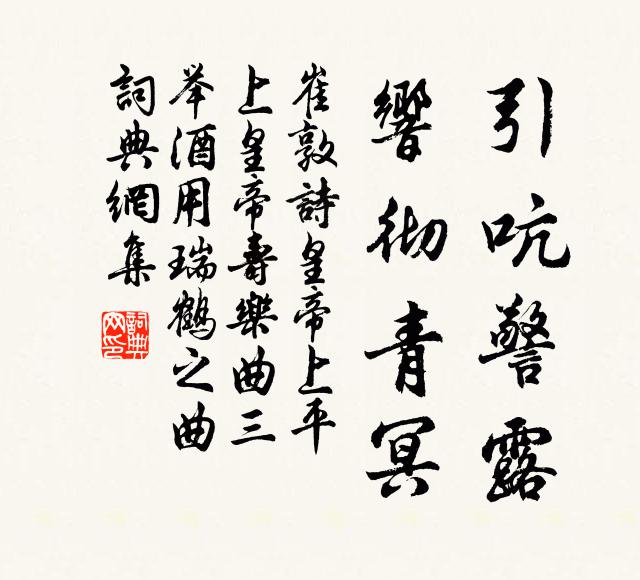 引吭警露
響彻青冥
崔敦詩皇帝上平
上皇帝壽樂曲三
举酒用瑞鶴之曲
詞典網集
詞典
网印